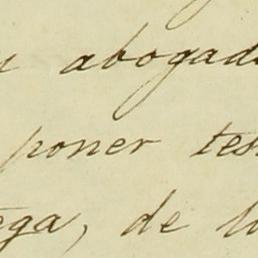 abogad
poner tes
ega, de lo